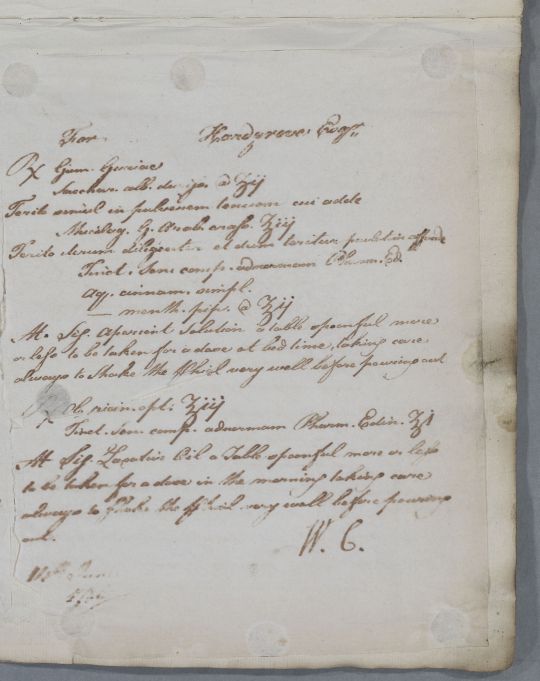 For Hardgrove Esqr
Rx Gum. Guaiac
Sacchar. alb. duriss. a ʒij
Terito simul in pulverem tenuem cui adde
Mucilag. G. Arab. crass. ʒiij
Terito iterum diligenter et dum teritur paulatim affunde
Tinct. Sen. comp. ad normam Pharm. Ed.
aq. cinnam. simpl.
— menth. pip. a ʒij
M. Sig. Aperient Solution a table spoonful more
or less to be taken for a dose at bed time, taking care
always to shake the Phial very well before pouring out
Rx Ol. ricin. opt. ʒiij
Tinct. Sen. comp. ad normam Pharm. Edin. ʒi
M Sig. Laxative Oil a Table spoonful more or less
to be taken for a dose in the morning taking care
always to shake the Phial very well before pouring
out.
W. C.